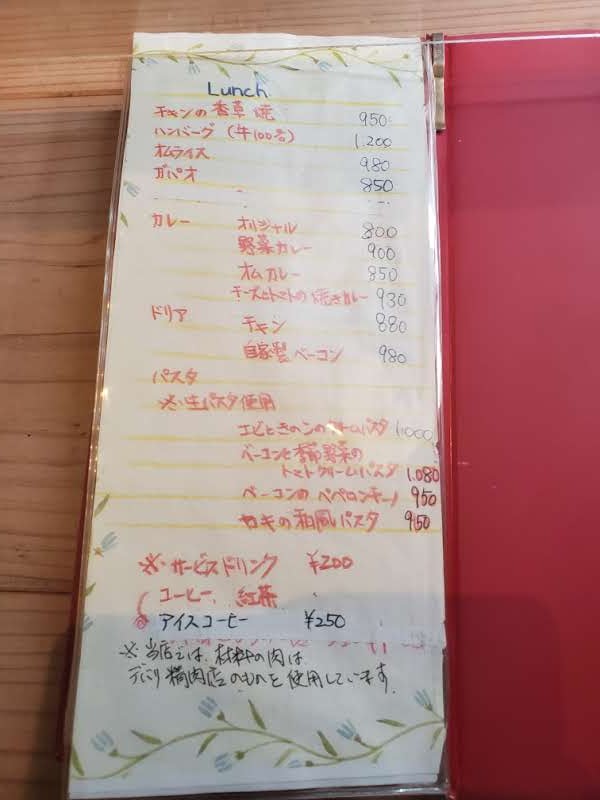 Lunch
チキンの香草焼 950
ハンバーグ (牛100%) 1.200
オムライス 980
ガパオ 850
カレー オリジナル 800
野菜カレー 900
オムカレー 850
チーズとトマトの焼きカレー 930
ドリア チキン 880
自家製ベーコン 980
パスタ
※生パスタ使用
エビときのこのクリームパスタ 1.000
ベーコンと季節野菜の
トマトクリームパスタ 1.080
ベーコンのペペロンチーノ 950
カキの和風パスタ 950
※サービスドリンク ¥200
コーヒー、紅茶
アイスコーヒー ¥250
※当店では、材料の肉は
精肉店のものを使用しています。